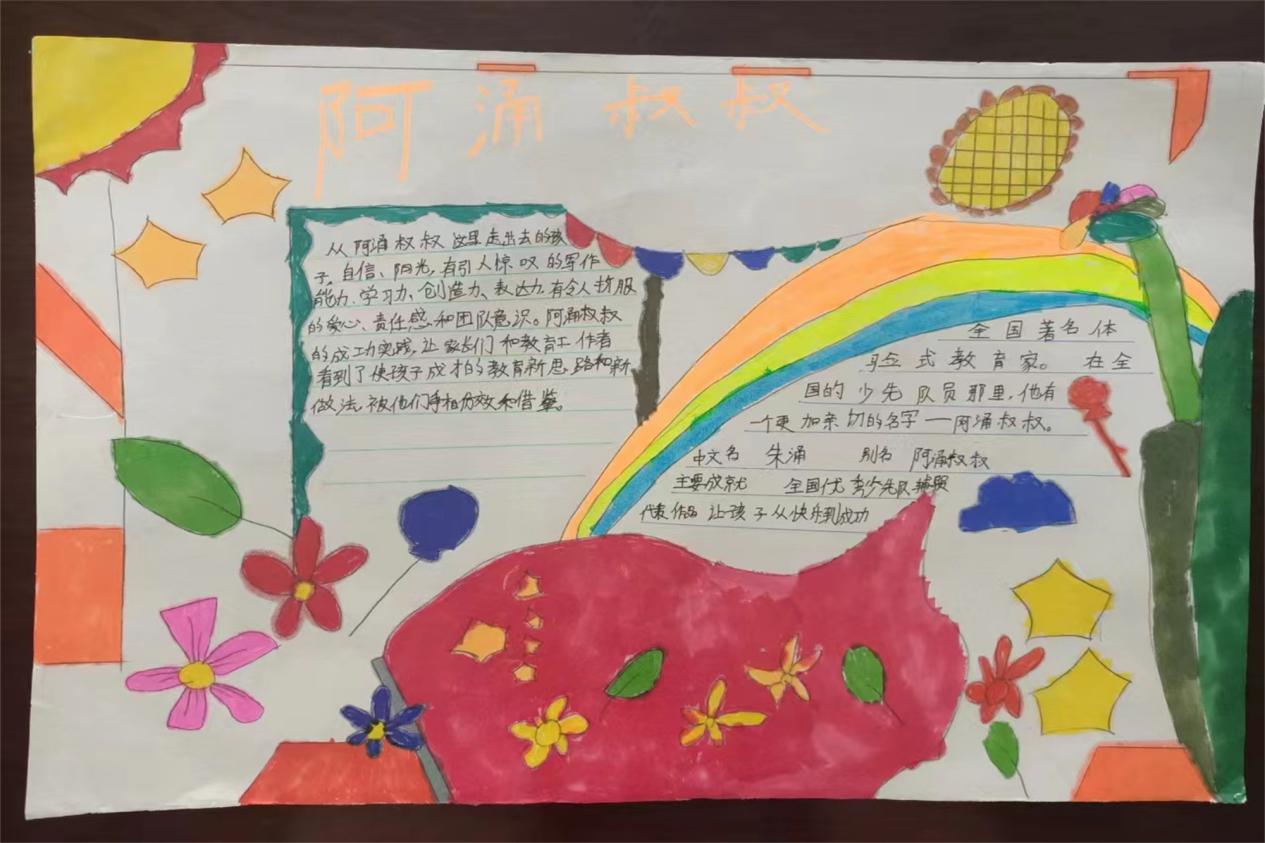 阿涌叔叔
从阿涌叔叔这里走出去的孩
子,自信、阳光,有引人惊叹的写作
能力、学习力、创造力、表达力,有令人折服
的爱心、责任感和团队意识。阿涌叔叔
的成功实践,让家长们和教育工作者
看到了使孩子成才的教育新思路和新
做法,被他们争相仿效和借鉴。
全国著名体
验式教育家。在全
国的少先队员那里,他有
一个更加亲切的名字一阿涌叔叔。
中文名 朱涌 别名 阿涌叔叔
主要成就 全国优秀少先队辅员
代表作品 让孩子从快乐到成功